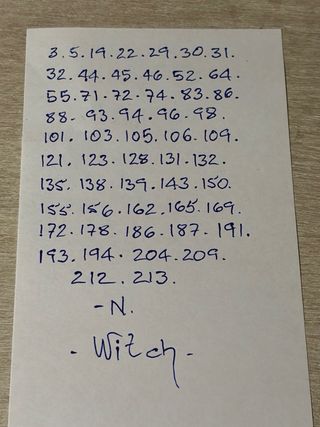 3.5.19.22.29.30.31.
32.44.45.46.52.64.
55.71.72.74.83.86.
88. 93.94.96.98.
101. 103.105.106.109.
121. 123.128.131.132.
135. 138.139.143.150.
155.156.162.165.169.
172.178.186.187.191.
193.194.204.209.
212.213.
-N.
- Witch -